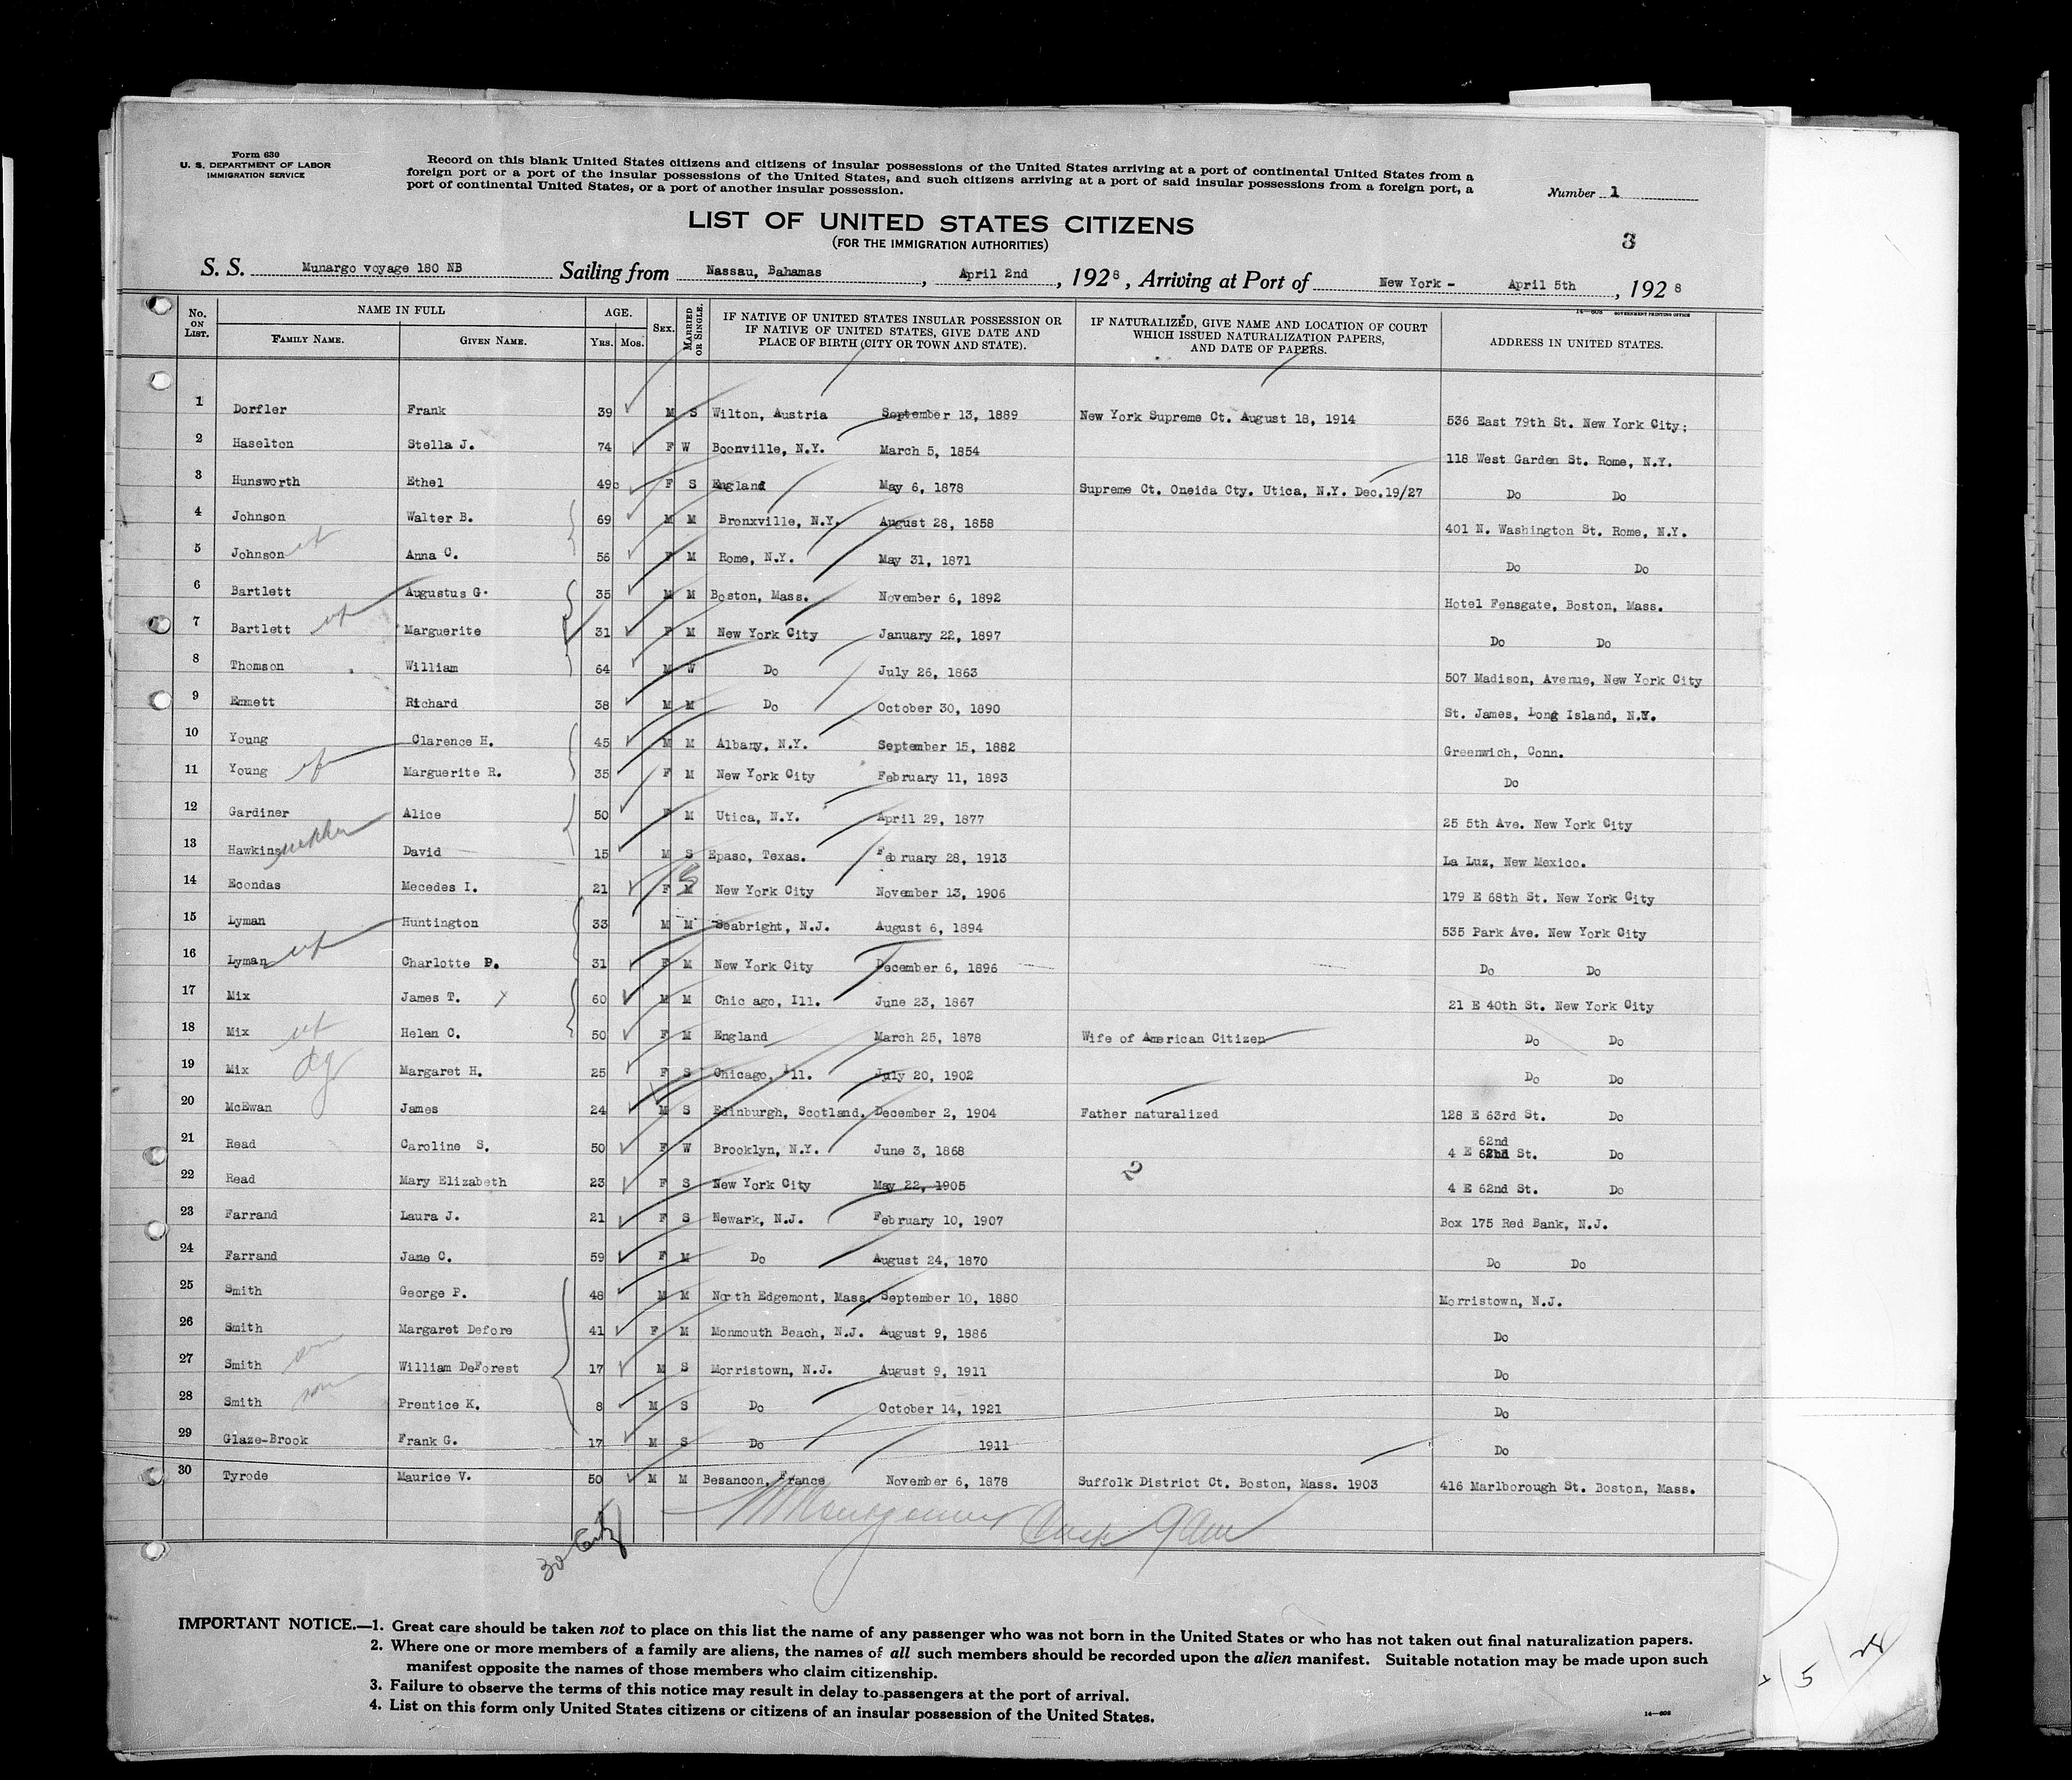 Form 630
U. S. DEPARTMENT OF LABOR
IMMIGRATION SERVICE
Record on this blank United States citizens and citizens of insular possessions of the United States arriving at a port of continental United States from a
foreign port or a port of the insular possessions of the United States, and such citizens arriving at a port of said insular possessions from a foreign port, a
port of continental United States, or a port of another insular possession.
Number 1
LIST OF UNITED STATES CITIZENS
(FOR THE IMMIGRATION AUTHORITIES)
3
S. S. Munargo voyage 180 NB Sailing from Nassau, Bahamas, April 2nd, 1928, Arriving at Port of New York - April 5th, 1928
14-608 GOVERNMENT PRINTING OFFICE
No. ON LIST. NAME IN FULL AGE. SEX. MARRIED OR SINGLE. IF NATIVE OF UNITED STATES INSULAR POSSESSION OR IF NATIVE OF UNITED STATES, GIVE DATE AND PLACE OF BIRTH (CITY OR TOWN AND STATE). IF NATURALIZED, GIVE NAME AND LOCATION OF COURT WHICH ISSUED NATURALIZATION PAPERS, AND DATE OF PAPERS. ADDRESS IN UNITED STATES.
FAMILY NAME. GIVEN NAME. Yrs. Mos.
1 Dorfler Frank 39 M S Wilton, Austria September 13, 1889 New York Supreme Ct. August 18, 1914 536 East 79th St. New York City;
2 Haselton Stella J. 74 F W Boonville, N.Y. March 5, 1854 118 West Garden St. Rome, N.Y.
3 Hunsworth Ethel 49 F S England May 6, 1878 Supreme Ct. Oneida Cty. Utica, N.Y. Dec.19/27 Do Do
4 Johnson Walter B. 69 M M Bronxville, N.Y. August 28, 1858 401 N. Washington St. Rome, N.Y.
5 Johnson Anna C. 56 F M Rome, N.Y. May 31, 1871 Do Do
6 Bartlett Augustus G. 35 M M Boston, Mass. November 6, 1892 Hotel Fensgate, Boston, Mass.
7 Bartlett wf Marguerite 31 F M New York City January 22, 1897 Do Do
8 Thomson William 64 M W Do July 26, 1863 507 Madison, Avenue, New York City
9 Emmett Richard 38 M M Do October 30, 1890 St. James, Long Island, N.Y.
10 Young Clarence H. 45 M M Albany, N.Y. September 15, 1882 Greenwich, Conn.
11 Young wf Marguerite R. 35 F M New York City February 11, 1893 Do
12 Gardiner Alice 50 F M Utica, N.Y. April 29, 1877 25 5th Ave. New York City
13 Hawkins David 15 M S Epaso, Texas. February 28, 1913 La Luz, New Mexico.
14 Econdas Mecedes I. 21 F M S New York City November 13, 1906 179 E 68th St. New York City
15 Lyman Huntington 33 M M Seabright, N.J. August 6, 1894 535 Park Ave. New York City
16 Lyman wf Charlotte P. 31 F M New York City December 6, 1896 Do Do
17 Mix James T. 60 M M Chic ago, Ill. June 23, 1867 21 E 40th St. New York City
18 Mix wf Helen C. 50 F M England March 25, 1878 Wife of American Citizen Do Do
19 Mix dg Margaret H. 25 F S Chicago, Ill. July 20, 1902 Do Do
20 McEwan James 24 M S Edinburgh, Scotland, December 2, 1904 Father naturalized 128 E 63rd St. Do
21 Read Caroline S. 50 F W Brooklyn, N.Y. June 3, 1868 4 E 62nd St. Do
22 Read Mary Elizabeth 23 F S New York City May 22, 1905 2 4 E 62nd St. Do
23 Farrand Laura J. 21 F S Newark, N.J. February 10, 1907 Box 175 Red Bank, N.J.
24 Farrand Jane C. 59 F M Do August 24, 1870 Do Do
25 Smith George P. 48 M M North Edgemont, Mass. September 10, 1880 Morristown, N.J.
26 Smith Margaret Defore 41 F M Monmouth Beach, N.J. August 9, 1886 Do
27 Smith son William DeForest 17 M S Morristown, N.J. August 9, 1911 Do
28 Smith son Prentice K. 8 M S Do October 14, 1921 Do
29 Glaze-Brook Frank G. 17 M S Do 1911 Do
30 Tyrode Maurice V. 50 M M Besancon, France November 6, 1878 Suffolk District Ct. Boston, Mass. 1903 416 Marlborough St. Boston, Mass.
30
IMPORTANT NOTICE.—1. Great care should be taken not to place on this list the name of any passenger who was not born in the United States or who has not taken out final naturalization papers.
2. Where one or more members of a family are aliens, the names of all such members should be recorded upon the alien manifest. Suitable notation may be made upon such
manifest opposite the names of those members who claim citizenship.
3. Failure to observe the terms of this notice may result in delay to passengers at the port of arrival.
4. List on this form only United States citizens or citizens of an insular possession of the United States.
14-608